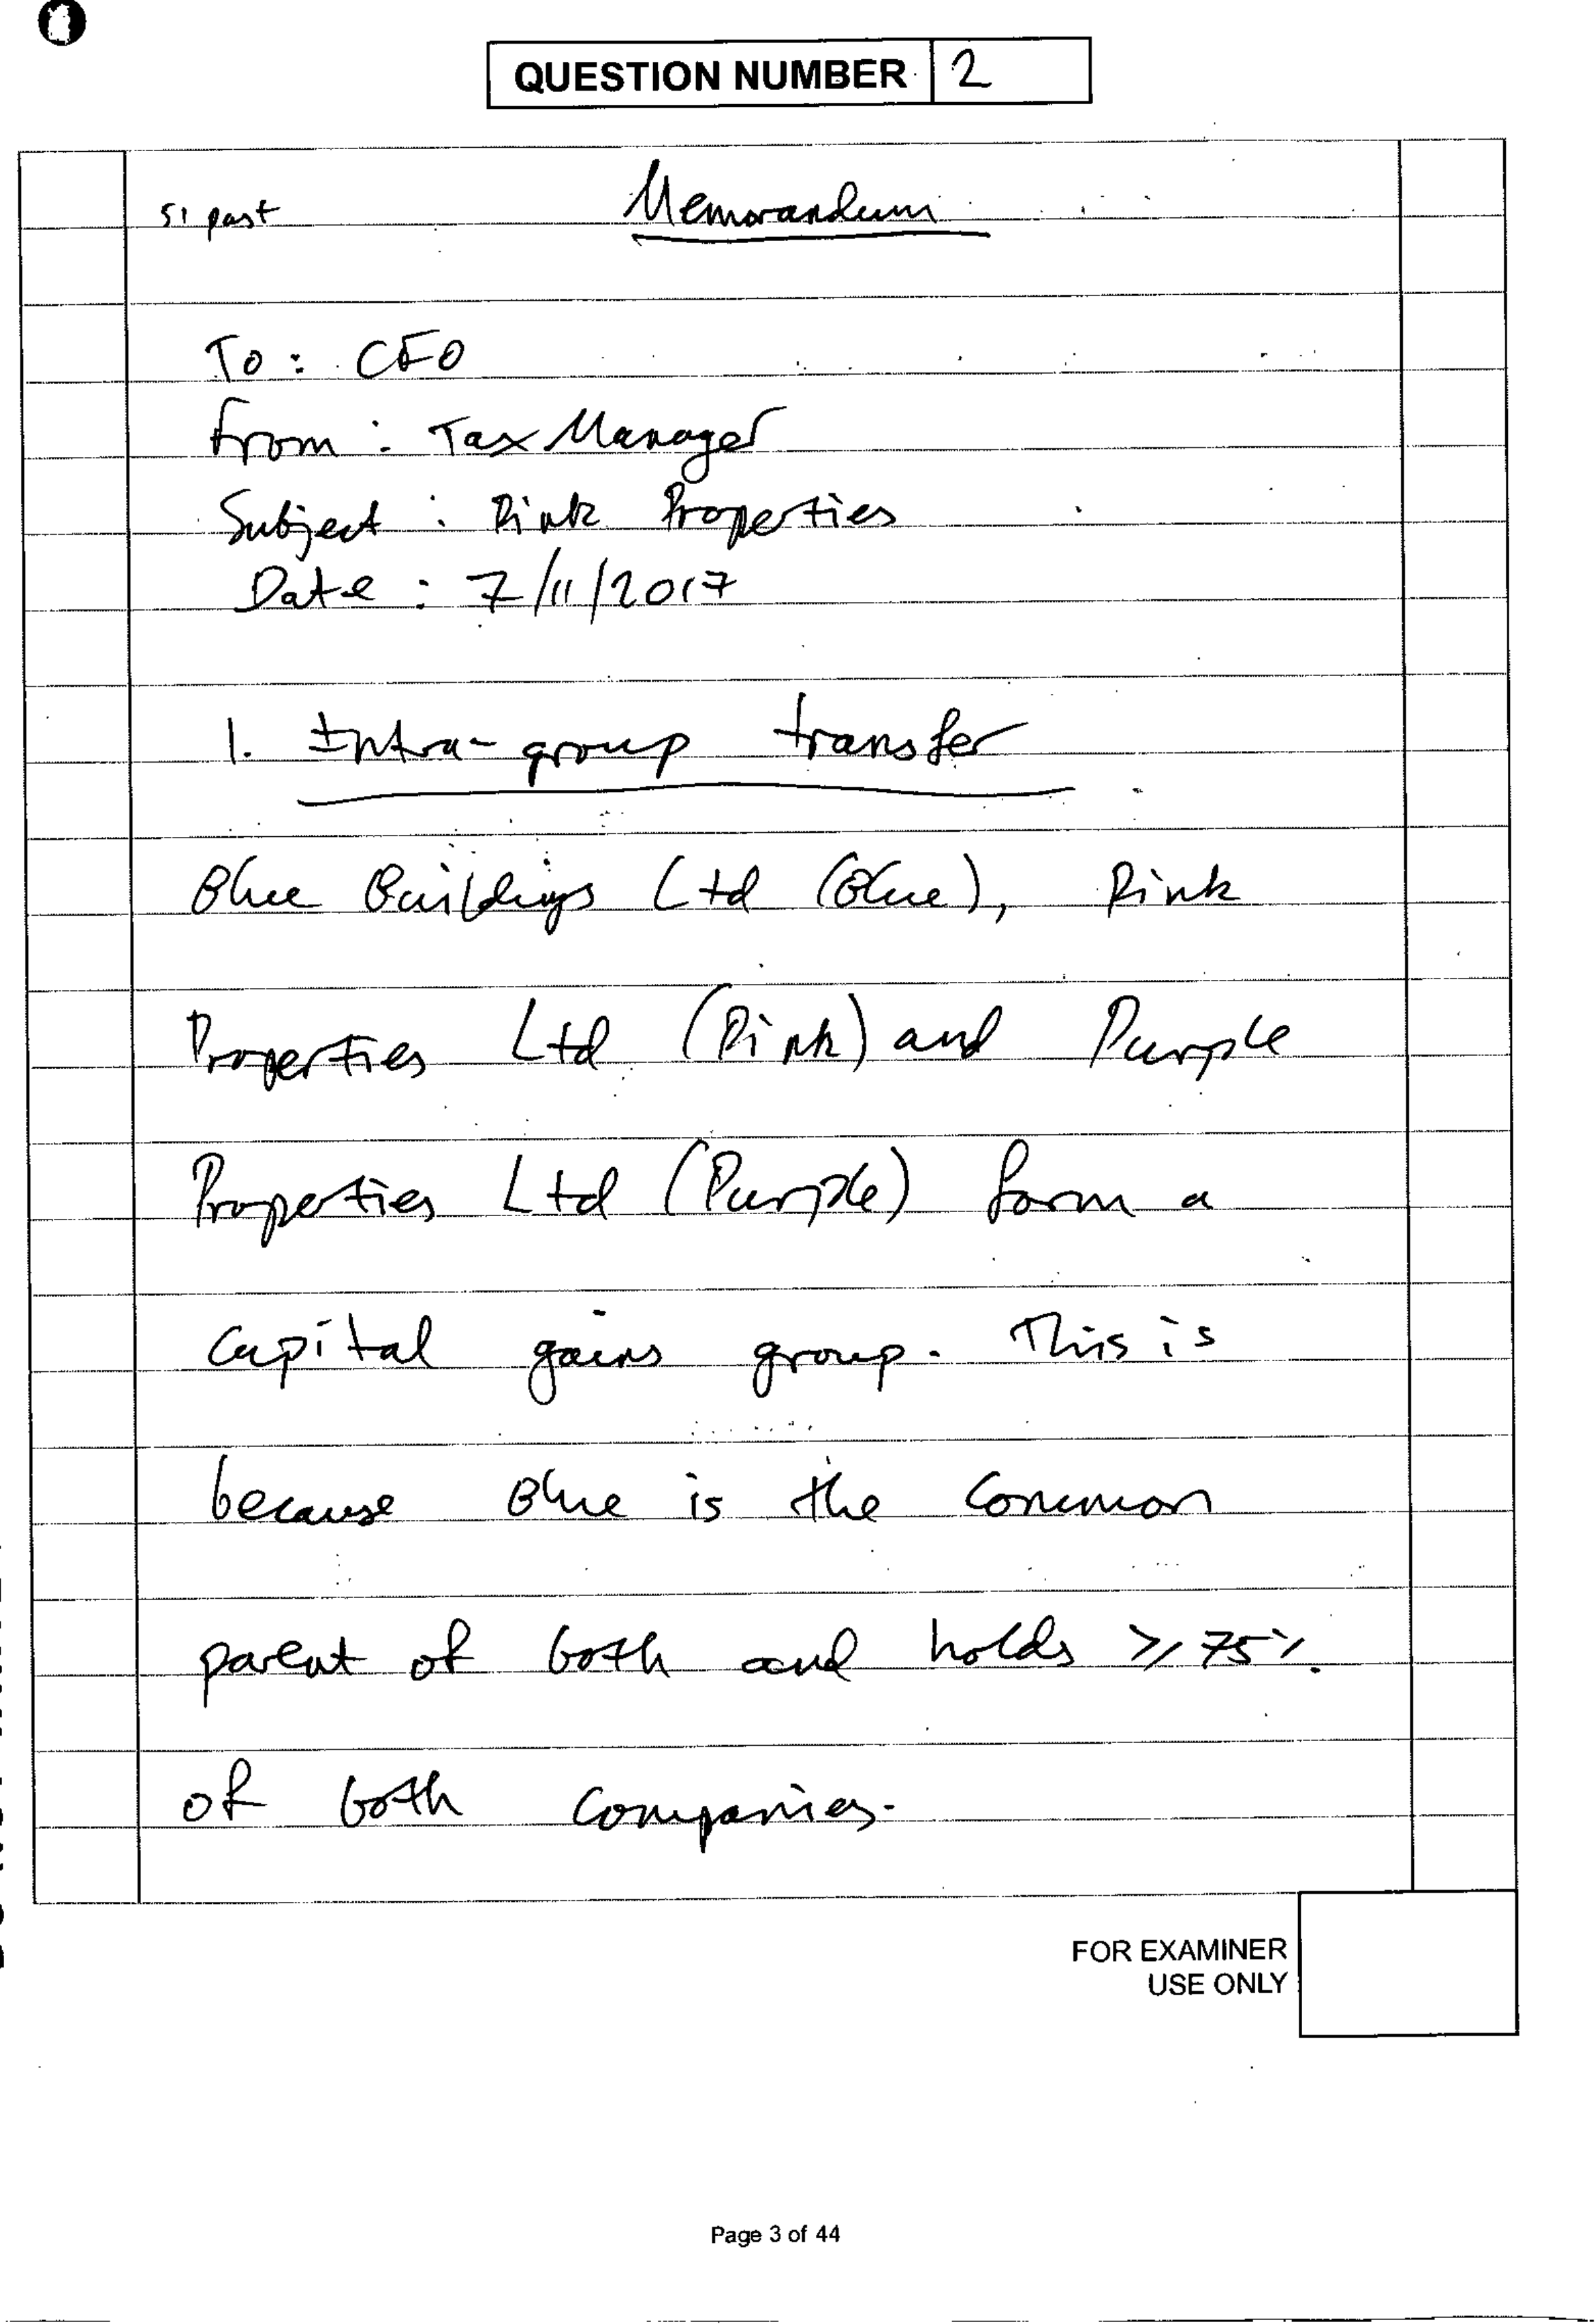 QUESTION NUMBER 2
51 past
Memorandum
To : CFO
From : Tax Manager
Subject : Pink Properties
Date : 7/11/2017
1. Intra-group transfer
Blue Buildings Ltd (Blue), Pink
Properties Ltd (Pink) and Purple
Properties Ltd (Purple) form a
capital gains group. This is
because Blue is the common
parent of both and holds ≥75%
of both companies.
FOR EXAMINER
USE ONLY
Page 3 of 44